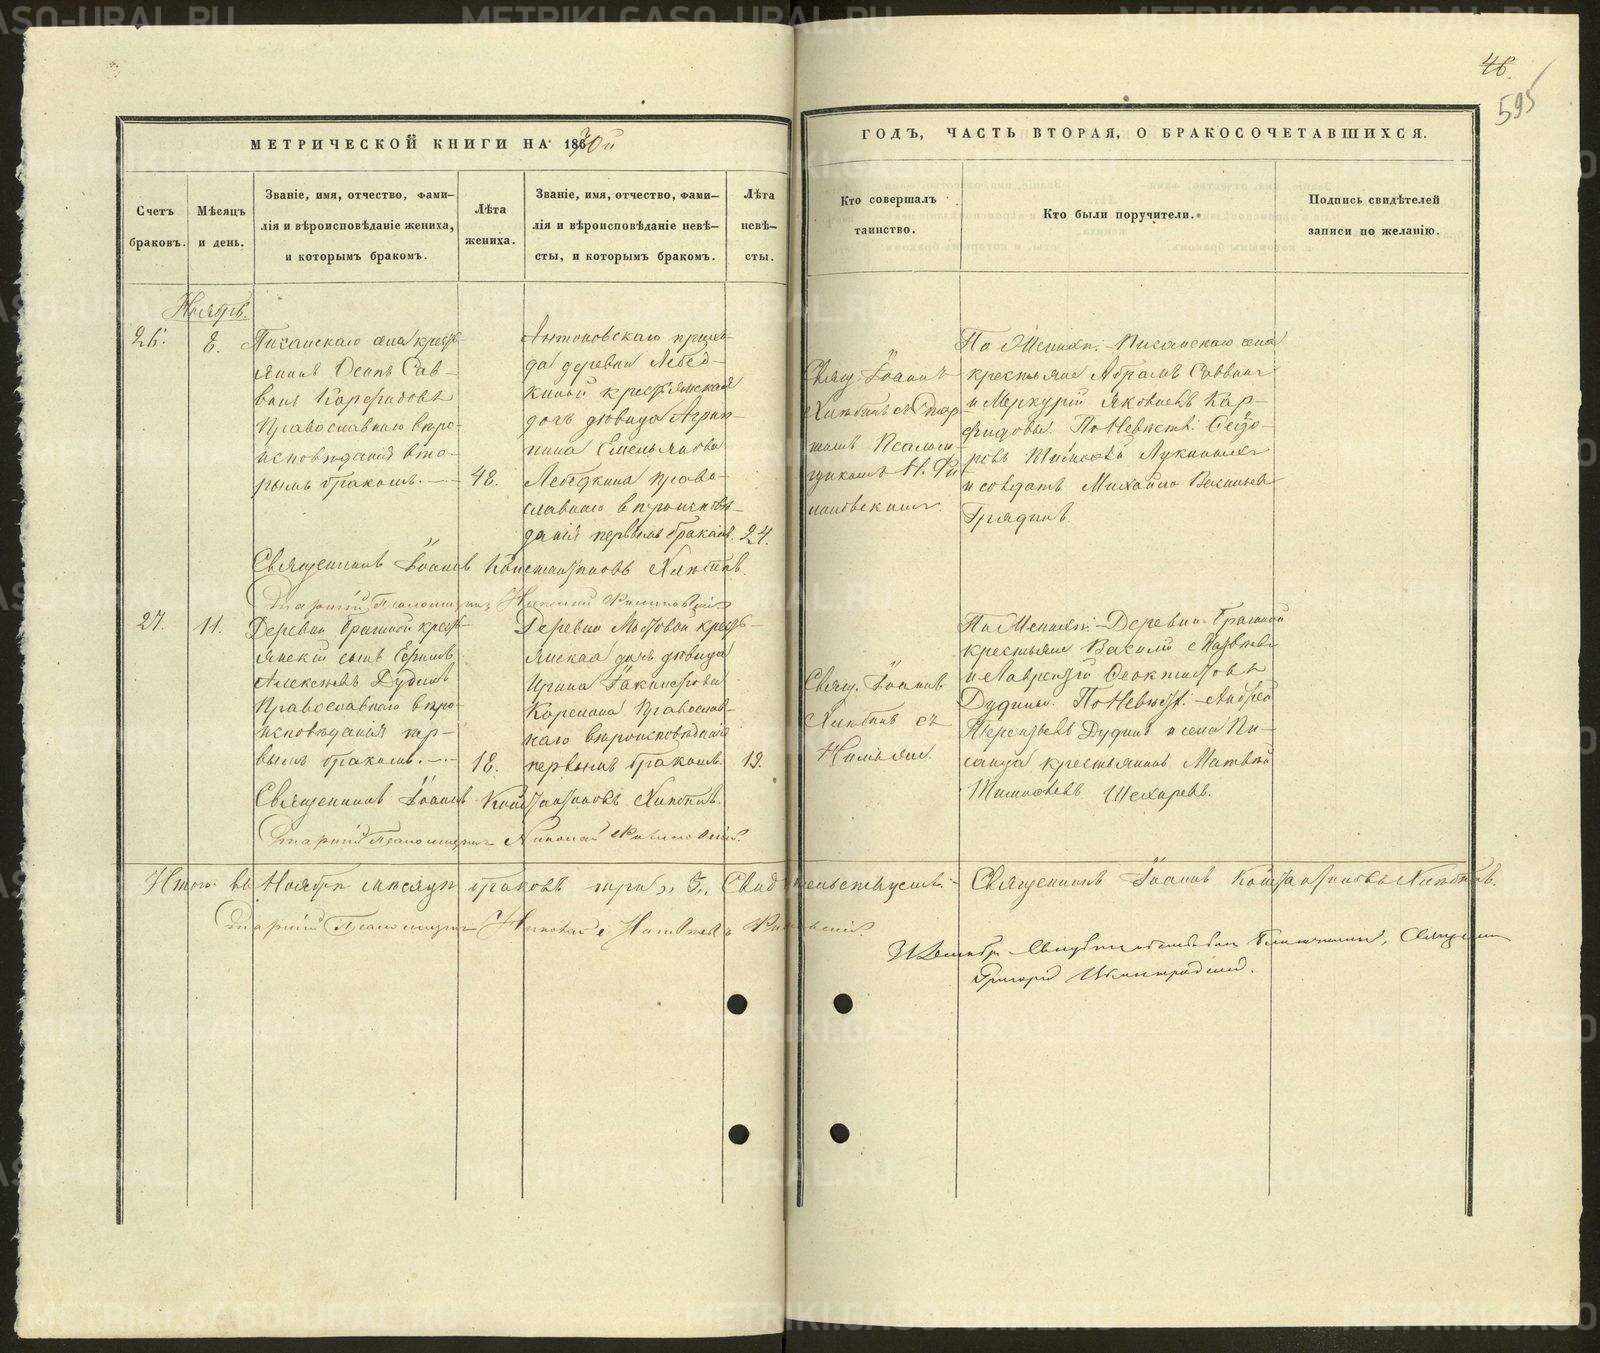 46.
595
МЕТРИЧЕСКОЙ КНИГИ НА 1870й
ГОДЪ, ЧАСТЬ ВТОРАЯ, О БРАКОСОЧЕТАВШИХСЯ.
Счетъ
браковъ.
Мѣсяцъ
и день.
Званіе, имя, отчество, фами-
лія и вѣроисповѣданіе жениха,
и которымъ бракомъ.
Лѣта
жениха.
Званіе, имя, отчество, фами-
лія и вѣроисповѣданіе невѣ-
сты, и которымъ бракомъ.
Лѣта
невѣ-
сты.
Кто совершалъ
таинство.
Кто были поручители.
Подпись свидѣтелей
записи по желанію.
Ноябрь.
26.
8.
Писанскаго села кресть-
янинъ Осипъ Сав-
винъ Карфидовъ
Православнаго вѣро-
исповѣданія вто-
рымъ бракомъ.
48.
Антоновскаго прихо-
да деревни Лебед-
киной крестьянская
дочь дѣвица Агрип-
пина Емельянова
Лебедкина право-
славнаго вѣроисповѣ-
данія первымъ бракомъ.
24.
Свящ. Іоаннъ
Хлѣбинъ съ Стар-
шимъ Псалом-
щикомъ Н.
По Женихѣ: Писанскаго села
крестьяне Абрамъ Саввинъ
и Меркурій Яковлевъ Кар-
фидовы. По Невѣстѣ:
и солдатъ Михайло Васильевъ
Грядинъ
Священникъ Іоаннъ Константиновъ Хлѣбинъ.
Старшій Псаломщикъ Николай
27.
11.
Деревни Брагиной кресть-
янскій сынъ Ефимъ
Алексѣевъ Дудинъ
Православнаго вѣро-
исповѣданія пер-
вымъ бракомъ.
18.
Деревни Мостовой кресть-
янская дочь дѣвица
Ирина
Карелина Православ-
наго вѣроисповѣданія
первымъ бракомъ.
19.
Свящ. Іоаннъ
Хлѣбинъ съ
По Женихѣ: Деревни Брагиной
крестьяне Василій
и Лаврентій Феоктистовъ
Дудины. По Невѣстѣ: Андрей
Терентьевъ Дудинъ и села Пи-
санца крестьянинъ Матвѣй
Тимофѣевъ
Священникъ Іоаннъ Константиновъ Хлѣбинъ.
Старшій Псаломщикъ Николай
Итого въ Ноябрѣ мѣсяцѣ браковъ три „3„ Свидѣтельствуемъ: Священникъ Іоаннъ Константиновъ Хлѣбинъ.
Старшій Псаломщикъ Николай
Свидѣтельствовалъ Благочинный, Священникъ
Григорій
METRIKI.GASO-URAL.RU